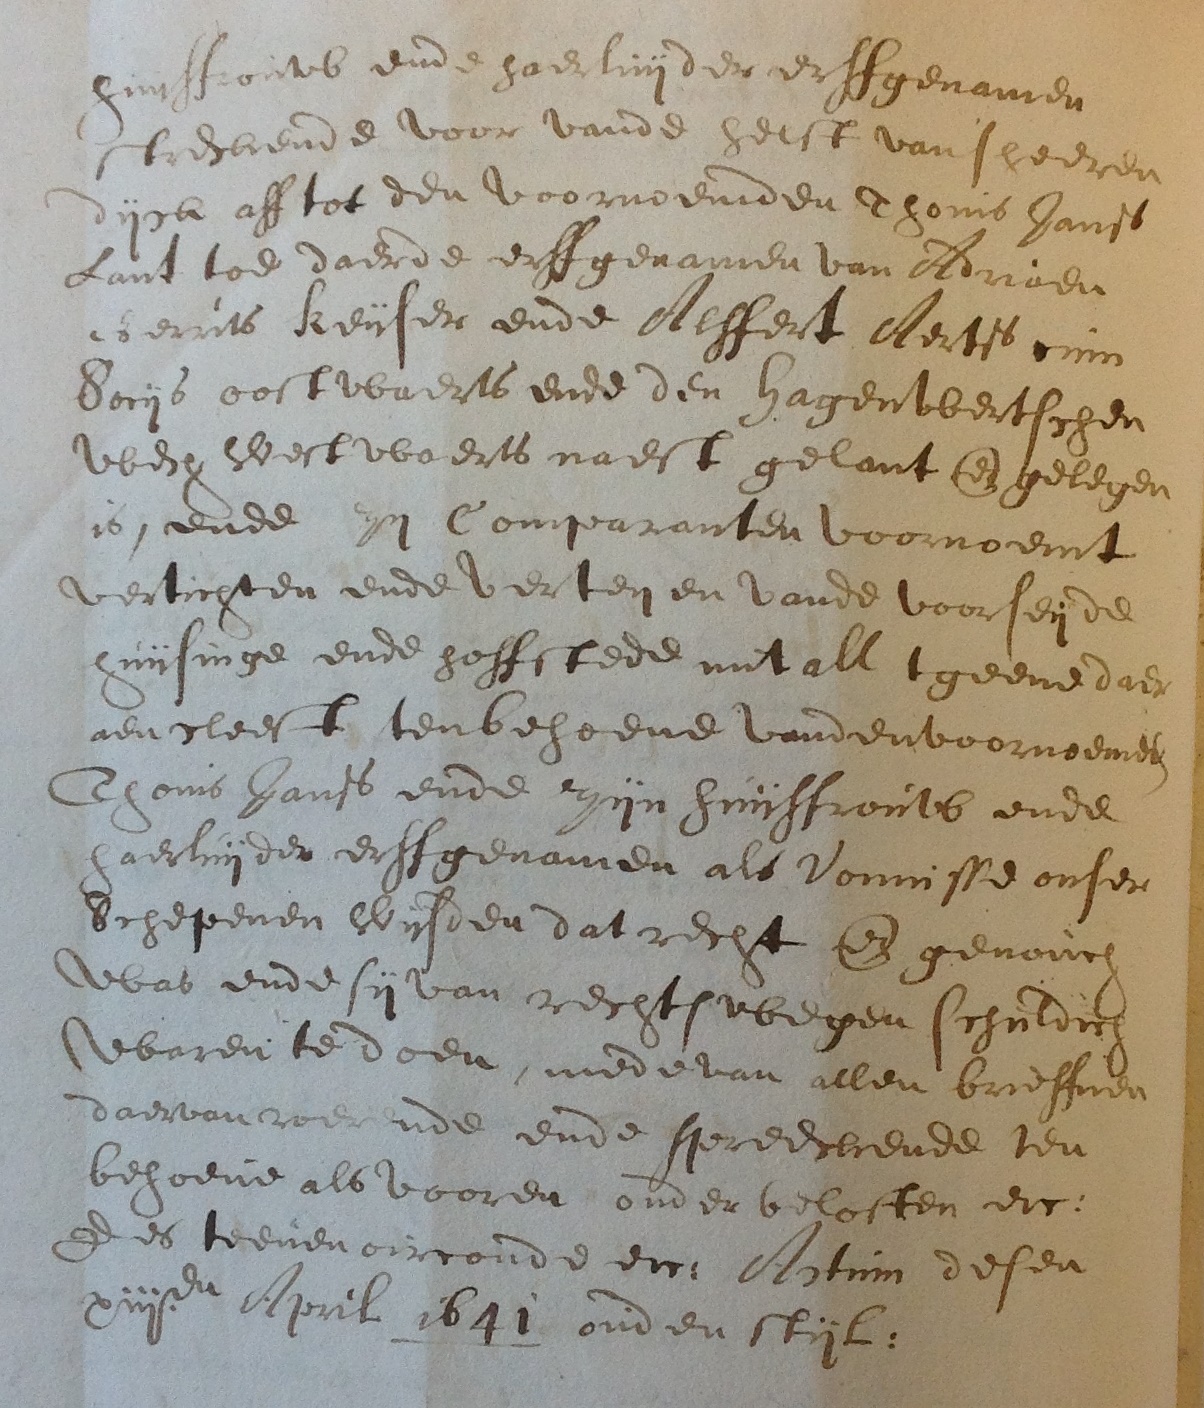 huijsfrouwe ende haerluijder erffgenamen
streckende voor vande helft van sheeren
dijck aff tot den voornoemden Thonis Janss
Lant toe daer de erffgenamen van Adriaen
Gerrits keijser ende Alffert Aertss cum
Socijs oostwaerts ende den Hagenwertschen
wech Westwaerts naest gelant en gelegen
is, ende zij Comparanten voornoemt
vertichten ende verteijen vande voorseijde
huijsinge ende hoffstede mit all tgeene daer
aen cleeft ten behoeve vanden voornoemden
Thonis Janss ende zijn huijsfrouwe ende
haerluijder erffgenamen als Vonnisse onser
Schepenen Wijsden dat recht en genouch
was ende sij van rechtswegen schuldich
waren te doen, mede van allen brieffven
daervan roerende ende spreeckende ten
behoeve als vooren onder belosten etc:
Des teenen oirconde etc: Actum desen
xiiijsten April 1641 ouden stijl: